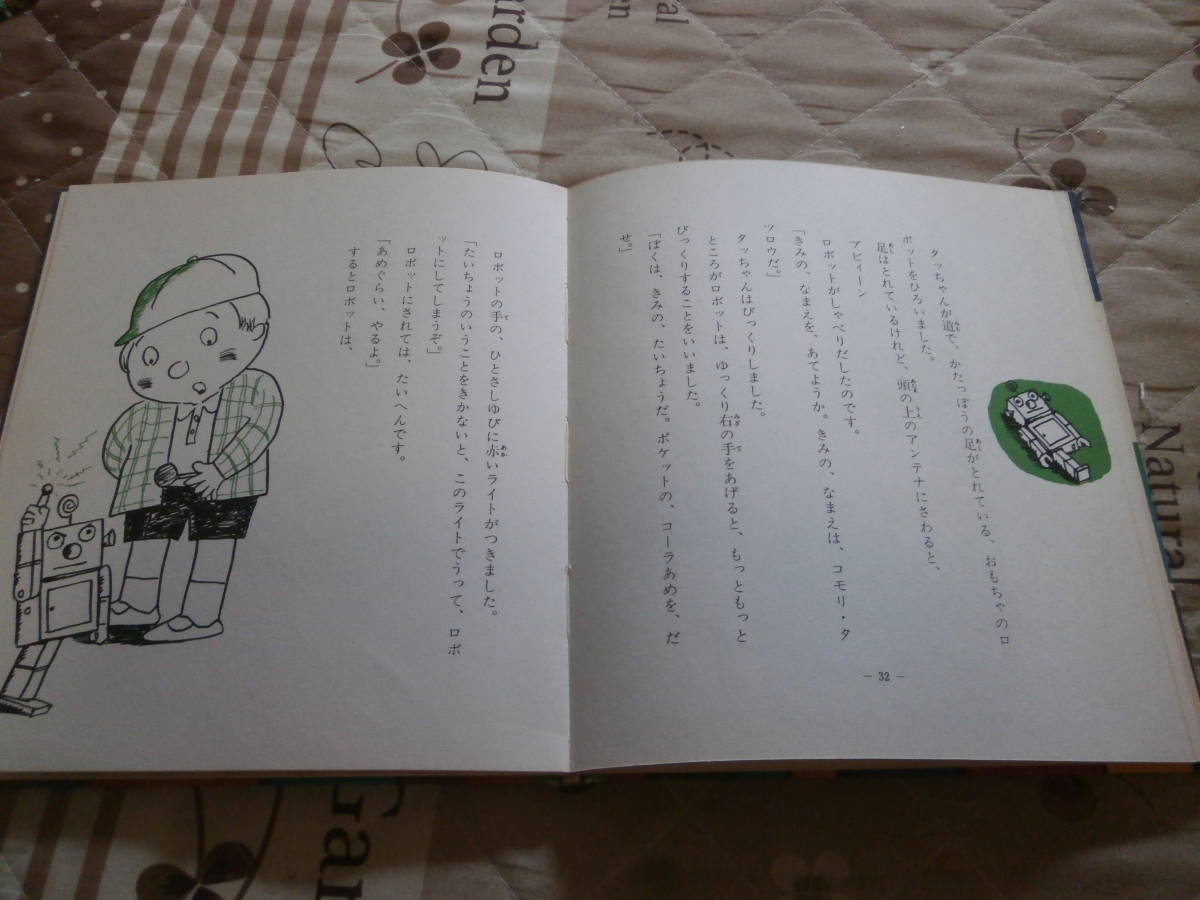 タッちゃんが道で、かたっぽうの足がとれている、おもちゃのロ
ボットをひろいました。
足はとれているけれど、頭の上のアンテナにさわると、
アビィーン
ロボットがしゃべりだしたのです。
「きみの、なまえを、あてようか。きみの、なまえは、コモリ・タ
ツロウだ。」
タッちゃんはびっくりしました。
ところがロボットは、ゆっくり右の手をあげると、もっともっと
びっくりすることをいいました。
「ぼくは、きみの、たいちょうだ。ポケットの、コーラあめを、だ
せ。」
— 32 —
ロボットの手の、ひとさしゆびに赤いライトがつきました。
「たいちょうのいうことをきかないと、このライトでうって、ロボ
ットにしてしまうぞ。」
ロボットにされては、たいへんです。
「あめぐらい、やるよ。」
するとロボットは、
Garden
Natural
Gar